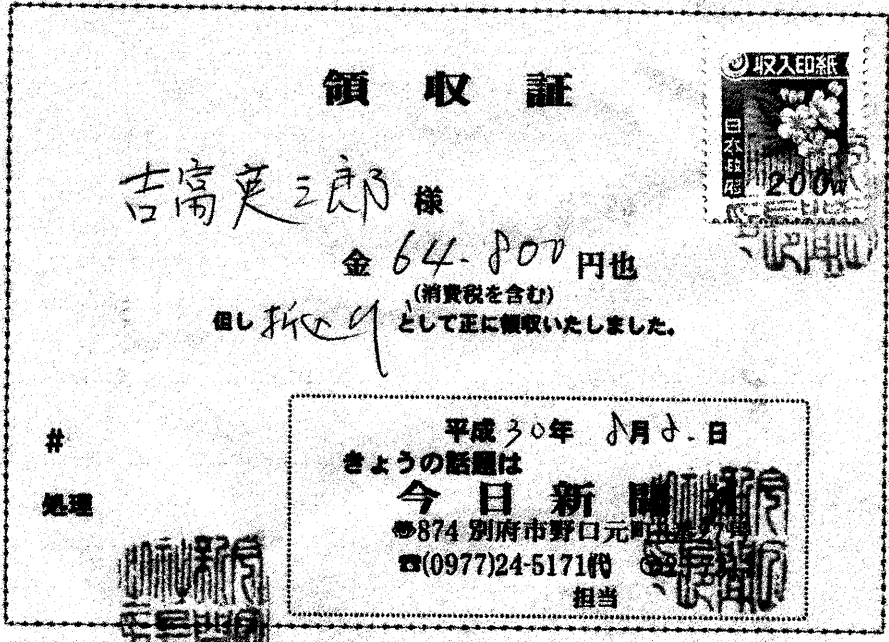 領収証
収入印紙
日本政府
200円
吉富英三郎 様
金 64.800 円也
(消費税を含む)
但し 折込り として正に領収いたしました。
平成30年 8月8.日
きょうの話題は
#
処理
今日新聞
〒874 別府市野口元町
☎(0977)24-5171代
担当